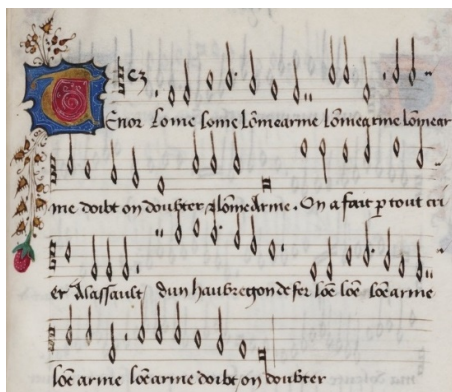 Tenor Lome Lome Lõmearme lõmearme lõmear
me doibt on doubter Lõmearme . On a fait p tout cri
er Alassault dun haubregon de fer lõe lõe lõearme
lõe arme lõearme doibt on doubter